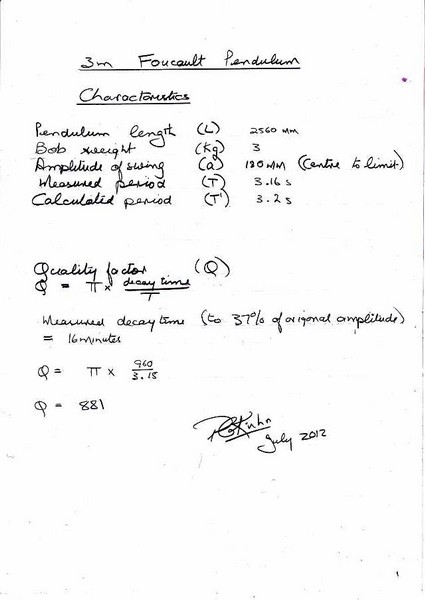 3m Foucault Pendulum
Characteristics
Pendulum length (L) 2560 mm
Bob weight (Kg) 3
Amplitude of swing (a) 180 mm (Centre to limit)
Measured period (T) 3.16 s
Calculated period (T') 3.2 s
Quality factor (Q)
Q = π × decay time / T
Measured decay time (to 37% of origonal amplitude)
= 16 minutes
Q = π × 960 / 3.15
Q = 881
Kuhn
July 2012
1